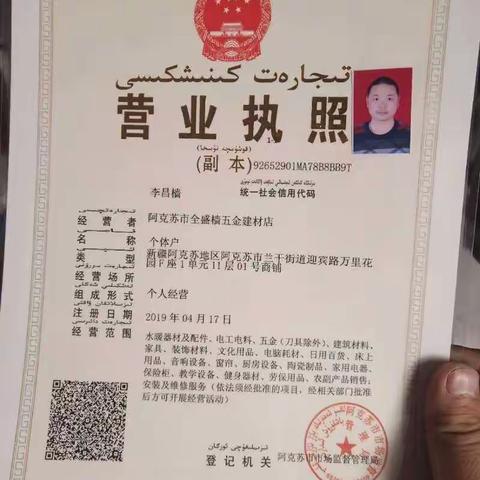 تىجارەت كىنىشكىسى
营业执照
(قوشۇمچە نۇسخا)
(副 本) 92652901MA78B8BB9T
统一社会信用代码
经营者 李昌樯
名称 阿克苏市全盛樯五金建材店
类型 个体户
经营场所 新疆阿克苏地区阿克苏市兰干街道迎宾路万里花
园F座1单元11层01号商铺
组成形式 个人经营
注册日期 2019年04月17日
经营范围 水暖器材及配件、电工电料、五金(刀具除外)、建筑材料、
家具、装饰材料、文化用品、电脑耗材、日用百货、床上
用品、音响设备、窗帘、厨房设备、陶瓷制品、家用电器、
保险柜、教学设备、健身器材、劳保用品、农副产品销售;
安装及维修服务(依法须经批准的项目,经相关部门批准
后方可开展经营活动)
تىزىملىغۇچى ئورگان
登记机关 阿克苏市市场监督管理局